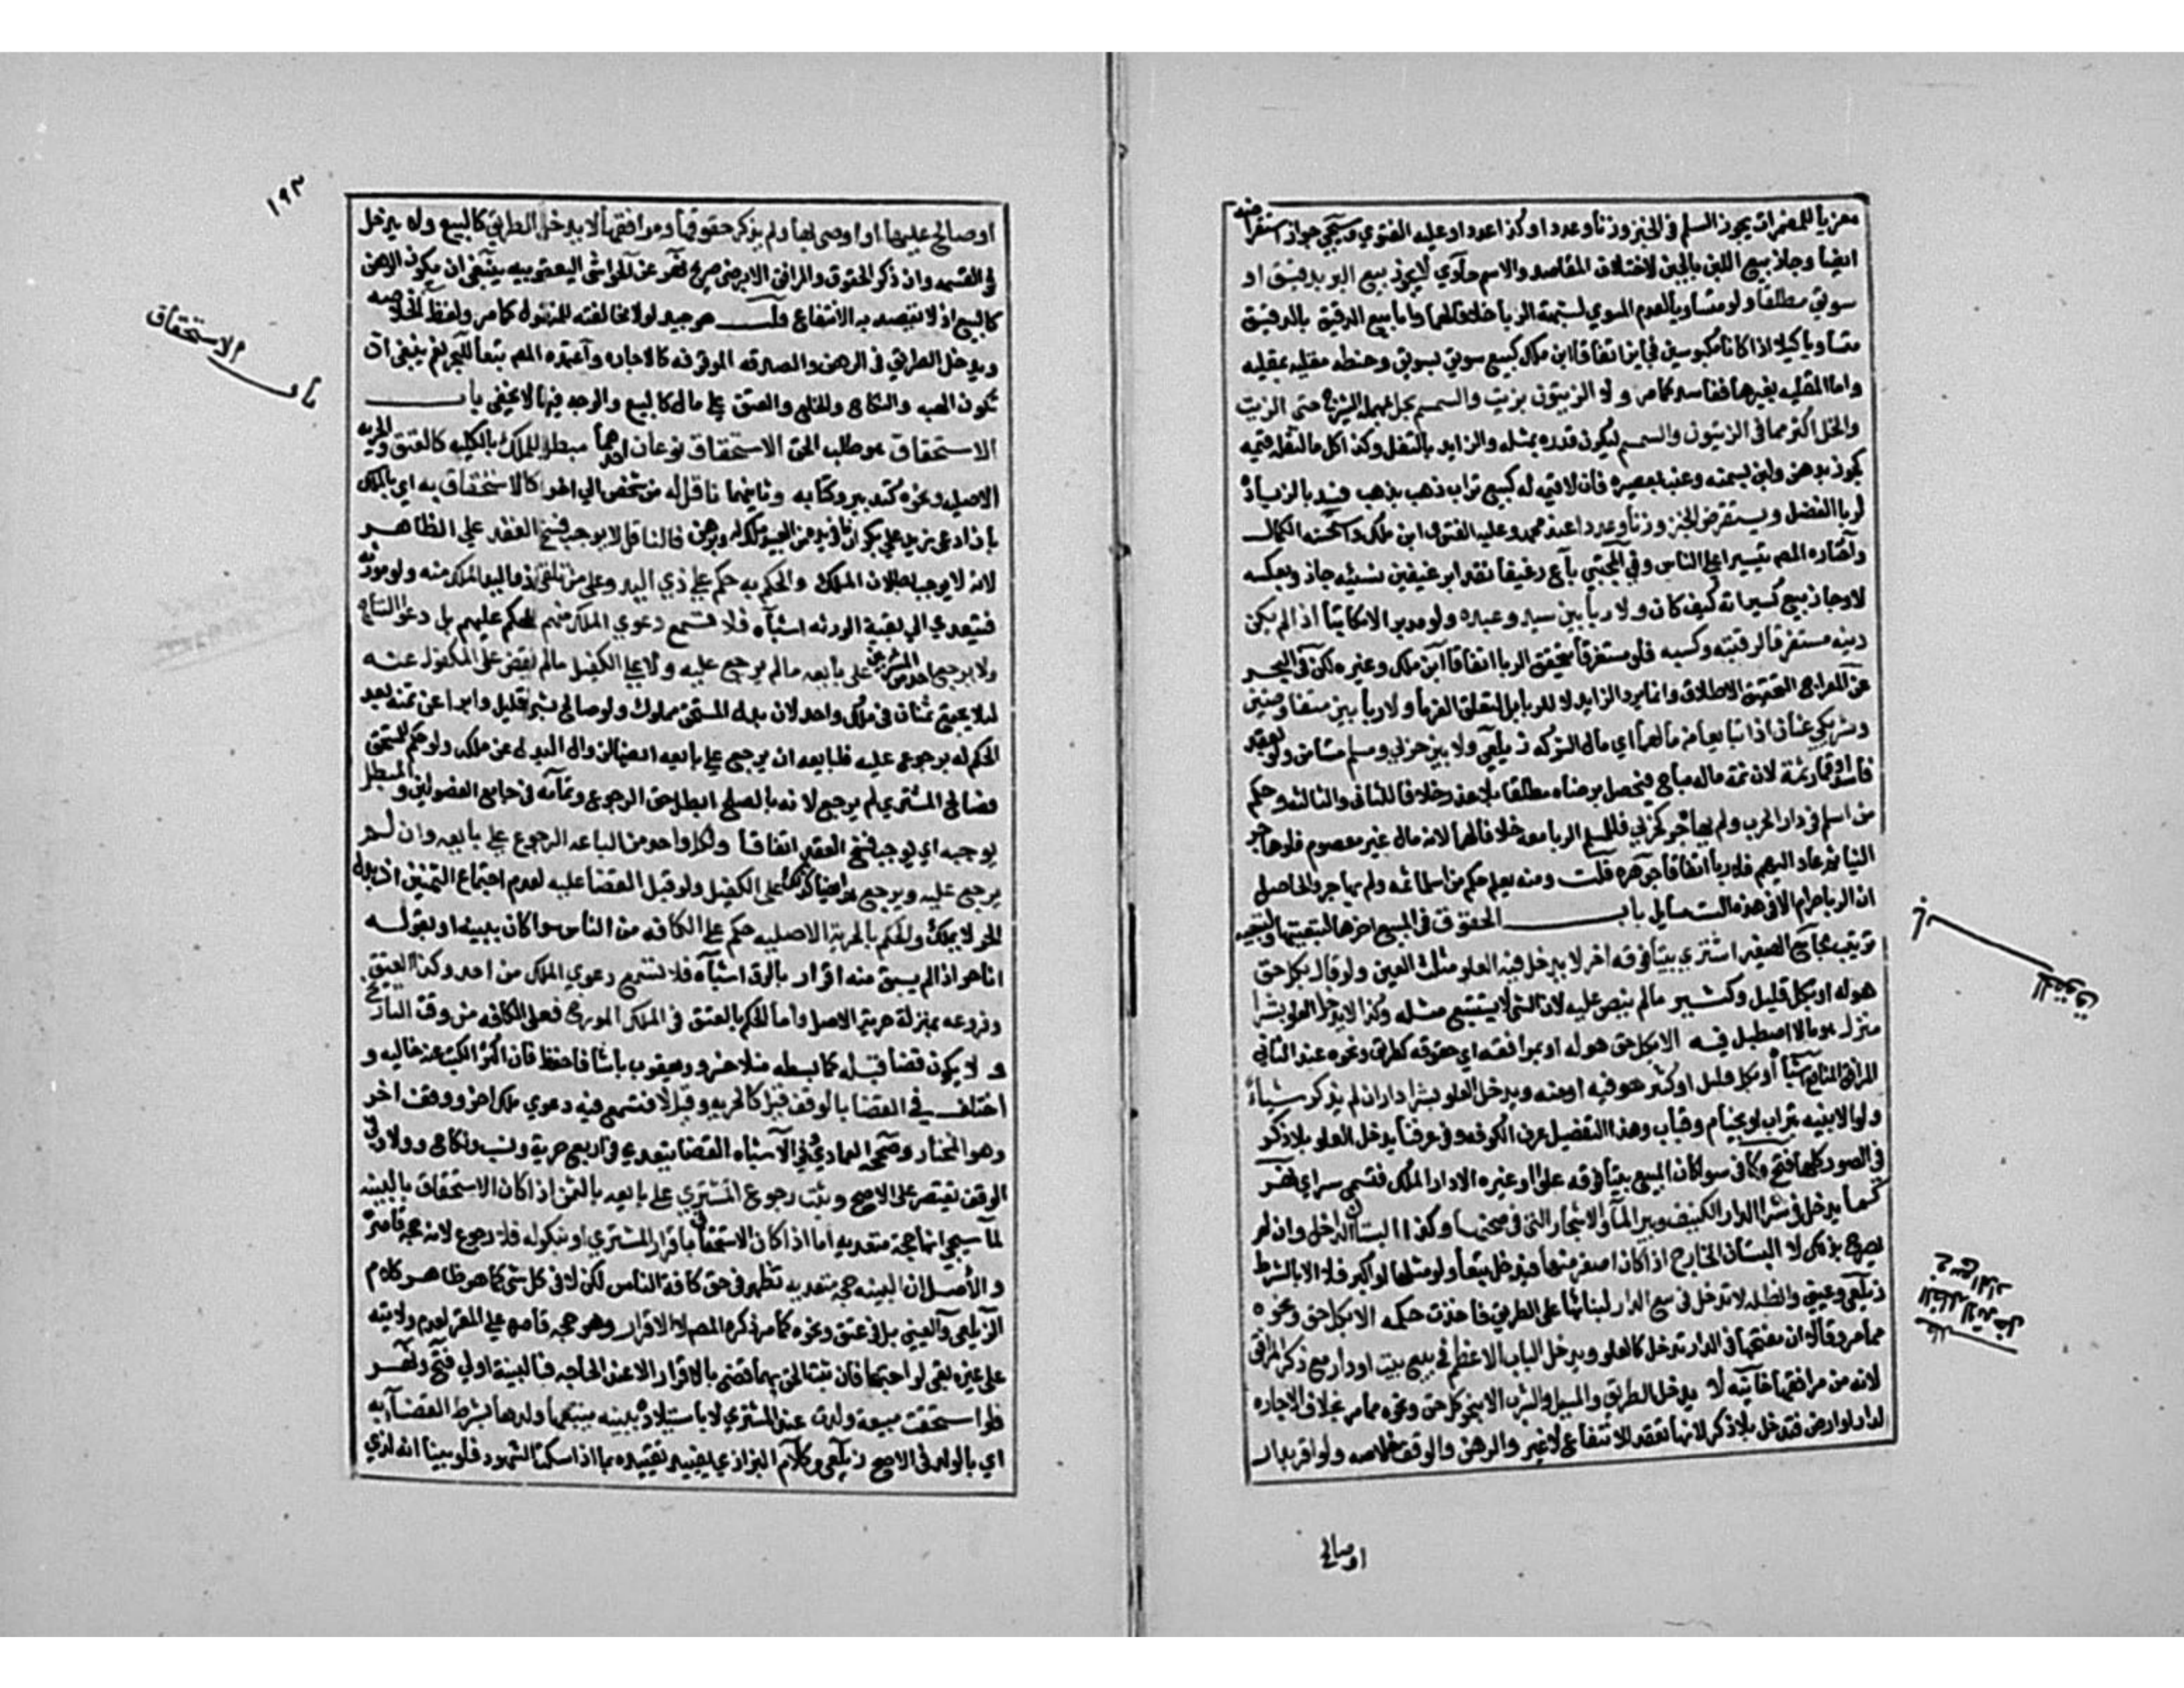 معزيا للمضمرات يجوز السلم في الخبز وزنا وعددا وكذا عددا وعليه الفتوي وسيجي جواز استقراضه
ايضا وجاز بيع اللبن بالجبن لاختلاف المقاصد والاسم حاوي لا يجوز بيع البر بدقيق او
سويق مطلقا ولو متساويا لعدم المسوي لشبهة الربا خلافا لهما واما بيع الدقيق بالدقيق
متساويا كيلا اذا كانا مكبوسين فجايز اتفاقا ابن ملك كبيع سويق بسويق وحنطه مقليه بمقليه
واما المقليه بغيرها ففاسد كما مر ولا الزيتون بزيت والسمسم بحل بمهملة الشيرج حتى الزيت
والحل اكثر مما في الزيتون والسمسم ليكون قدره بمثله والزايد بالثفل وكذا كل ما لثفله قيمه
كجوز بدهن ولبن بسمنه وعنب بعصيره فان لا قيمه له كبيع تراب ذهب بذهب فسد بالزيادة
لربا الفضل ويستقرض الخبز وزنا وعددا عند محمد وعليه الفتوي ابن ملك واستحسنه الكمال
واختاره المصـ تيسيرا على الناس وفي المجتبي باع رغيفا نقدا برغيفين نسيئه جاز وبعكسه
لا وجاز بيع كسيراته كيف كان ولا ربا بين سيد وعبده ولو مدبرا لا مكاتبا اذا لم يكن
دينه مستغرقا لرقبته وكسبه فلو مستغرقا يتحقق الربا اتفاقا ابن ملك وغيره لكن في البحر
عن المعراج التحقيق الاطلاق وانما يرد الزايد لا للربا بل لتعلق الغرما ولا ربا بين متفاوضين
وشريكي عنان اذا تبايعا من مالهما اي مال الشركه زيلعي ولا بين حربي ومسلم مستامن ولو بعقد
فاسد او قمار ثمة لان ماله ثمه مباح فيحل برضاه مطلقا بلا عذر خلافا للثاني والثالثه وحكم
من اسلم في دار الحرب ولم يهاجر كحربي فللمسلم الربا معه خلافا لهما لان ماله غير معصوم فلو هاجر
الينا ثم عاد اليهم فلا ربا اتفاقا جوهره قلت ومنه يعلم حكم من اسلما ثمه ولم يهاجرا والحاصل
ان الربا حرام الا في هذه الست مسايل باب الحقوق في البيع اخرها لتبعيتها ولتبعيه
ترتيب الجامع الصغير اشتري بيتا فوقه اخر لا يدخل فيه العلو مثلث العين ولو قال بكل حق
هو له او بكل قليل وكثير ما لم ينص عليه لان الشي لا يستتبع مثله وكذا لا يدخل العلو بشرا
منزل هو ما لا اصطبل فيه الا بكل حق هو له او بمرافقه اي حقوقه كطريق ونحوه عند الثاني
المرافق المنافع اشباه او بكل قليل او كثير هو فيه او منه ويدخل العلو بشرا دار ان لم يذكر شياء
ولو الابنيه بتراب او بخيام وقباب وهذا التفصيل عرف الكوفه وفي عرفنا يدخل العلو بلا ذكر
في الصور كلها فتح وكافي سوا كان المبيع بيتا فوقه علو او غيره الا دار الملك فتسمى سراي نهر
كما يدخل في شرا الدار الكنيف وبير الماء والاشجار التي في صحنها وكذا البستان الداخل وان لم
يصرح بذلك لا البستان الخارج اذا كان اصغر منها فيدخل تبعا ولو مثلها او اكبر فلا الا بالشرط
زيلعي وعيني والظله لا تدخل في بيع الدار لبنائها على الطريق فاخذت حكمه الا بكل حق ونحوه
مما مر وقالا ان مفتحها في الدار تدخل كالعلو ويدخل الباب الاعظم في بيع بيت او دار مع ذكر المرافق
لانه من مرافقها خانيه لا يدخل الطريق والمسيل والشرب الا بنحو كل حق ونحوه مما مر بخلاف الاجاره
لدار او ارض فتدخل بلا ذكر لانها تعقد للانتفاع لا غير والرهن والوقف خلاصه ولو اقر بدار
الحقوق
اوصالح
١٩٣
اوصالح عليها او اوصى بها ولم يذكر حقوقها ومرافقها لا يدخل الطريق كالبيع ولا يدخل
في القسمه وان ذكر الحقوق والمرافق الا برضى صريح نهر عن الحواشي اليعقوبيه ينبغي ان يكون الرهن
كالبيع اذ لا يقصد به الانتفاع قلت هو جيد لولا مخالفته للمنقول كما مر ولفظ الخلاصه
ويدخل الطريق في الرهن والصدقه الموقوفه كالاجاره واعتمده المصـ تبعا للبحر نعم ينبغي ان
تكون الهبه والنكاح والخلع والعتق على مال كالبيع والوجه فيها لا يخفى باب
الاستحقاق هو طلب الحق الاستحقاق نوعان احدهما مبطل للملك بالكليه كالعتق والحريه
الاصليه ونحوه كتدبير وكتابه وثانيهما ناقل له من شخص الي اخر كالاستحقاق به اي بالملك
بان ادعى زيد على بكر ان ما في يده من العبد ملك له وبرهن فالناقل لا يوجب فسخ العقد على الظاهر
لانه لا يوجب بطلان الملك والحكم به حكم على ذي اليد وعلى من تلقى ذو اليد الملك منه ولو مورثه
فيتعدي الي بقية الورثه اشباه فلا تسمع دعوي الملك منهم للحكم عليهم بل دعوى النتاج
ولا يرجع احد من المشترين على بايعه ما لم يرجع عليه ولا على الكفيل ما لم يقض على المكفول عنه
ليلا يجتمع ثمنان في ملك واحد لان بدل المستحق مملوك ولو صالح بشي قليل وابرا عن ثمنه بعد
الحكم له برجوع عليه فلبايعه ان يرجع على بايعه ايضا لزوال البدل عن ملكه ولو حكم للمستحق
فصالح المشتري لم يرجع لانه بالصلح ابطل حق الرجوع وتمامه في جامع الفصولين والمبطل
يوجبه اي يوجب فسخ العقد اتفاقا ولكل واحد من الباعه الرجوع على بايعه وان لم
يرجع عليه ويرجع هو ايضا كذلك على الكفيل ولو قبل القضا عليه لعدم اجتماع الثمنين اذ بدل
الحر لا يملك والحكم بالحرية الاصليه حكم على الكافه من الناس سوا كان ببينه او بقوله
انا حر اذا لم يسبق منه اقرار بالرق اشباه فلا تسمع دعوي الملك من احد وكذا العتق
وفروعه بمنزلة حرية الاصل واما الحكم بالعتق في الملك المورخ فعلى الكافه من وقت التاريخ
و لا يكون قضا قبله كما بسطه منلا خسرو ويعقوب باشا فاحفظ فان اكثر الكتب عنه خاليه و
اختلف في القضا بالوقف قيل كالحريه وقيل لا فتسمع فيه دعوي ملك اخر ووقف اخر
وهو المختار وصححه العمادي وفي الاشباه القضا يتعدي في اربع حرية ونسب ونكاح وولاء وفي
الوقف يقتصر على الاصح ويثبت رجوع المشتري على بايعه بالثمن اذا كان الاستحقاق بالبينه
لما سيجي انها حجة متعديه اما اذا كان الاستحقاق باقرار المشتري او بنكوله فلا رجوع لانه حجة قاصرة
و الاصل ان البينه حجة متعديه تظهر في حق كافة الناس لكن لا في كل شي كما هو ظاهر كلام
الزيلعي والعيني بل في عتق ونحوه كما مر ذكره المصـ لا الاقرار وهو حجه قاصره على المقر لعدم ولايته
على غيره بقي لو اجتمعا فان ثبت الحق بهما قضى بالاقرار الا عند الحاجه فبالبينة اولي فتح ونهر
فلو استحقت مبيعة ولدت عند المشتري لا باستيلاده ببينه يتبعها ولدها بشرط القضا به
اي بالولد في الاصح زيلعي وكلام البزازي يفيد تقييده بما اذا سكت الشهود فلو بينا انه لذي
باب الاستحقاق